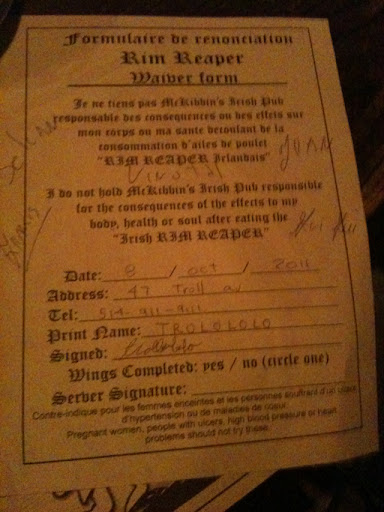 Formulaire de renonciation
Rim Reaper
Waiver form
Je ne tiens pas McKibbin's Irish Pub
responsable des consequences ou des effets sur
mon corps ou ma sante decoulant de la
consommation d'ailes de poulet
"RIM REAPER Irlandais"
JUAN
I do not hold McKibbin's Irish Pub responsible
for the consequences of the effects to my
body, health or soul after eating the
"Irish RIM REAPER"
Date: 8 / oct / 2011
Address: 47 Troll av
Tel: 514-911-9111
Print Name: TROLOLOLO
Signed: Trollololo
Wings Completed: yes / no (circle one)
Server Signature:
Contre-indique pour les femmes enceintes et les personnes souffrant d'un ulcere
d'hypertension ou de maladies de coeur.
Pregnant women, people with ulcers, high blood pressure or heart
problems should not try these.